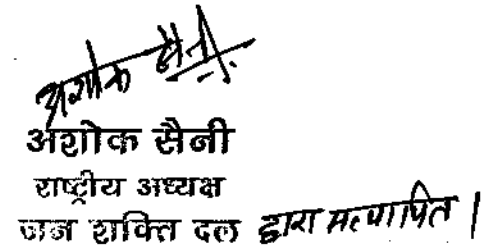 अशोक सैनी
अशोक सैनी
राष्ट्रीय अध्यक्ष
जन शक्ति दल द्वारा सत्यापित।